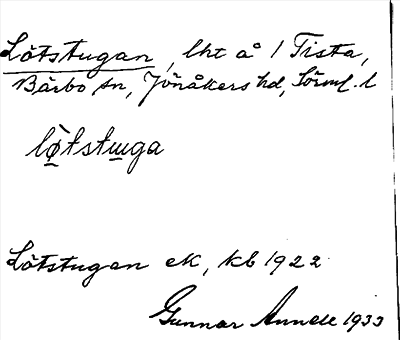 Lötstugan, lht å 1 Tista,
Bärbo sn, Jönåkers hd, Sörml. l
lö̀tstɯga
Lötstugan ek, kb 1922
Gunnar Annell 1933